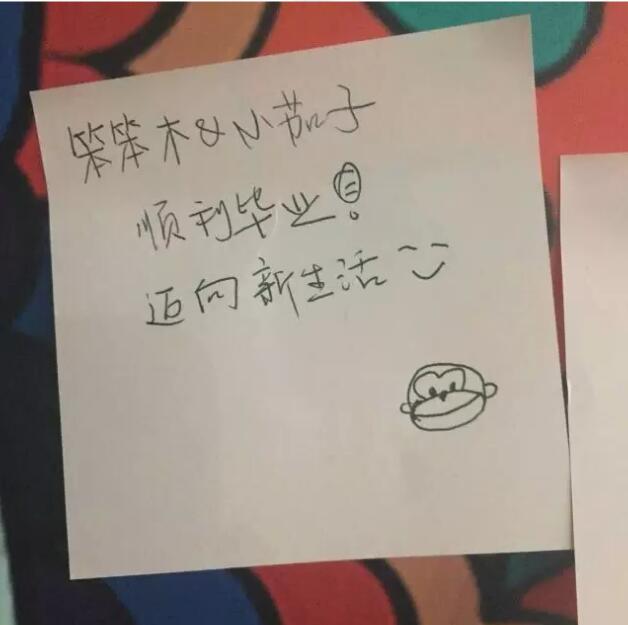 笨笨木&小茄子
顺利毕业!
迈向新生活